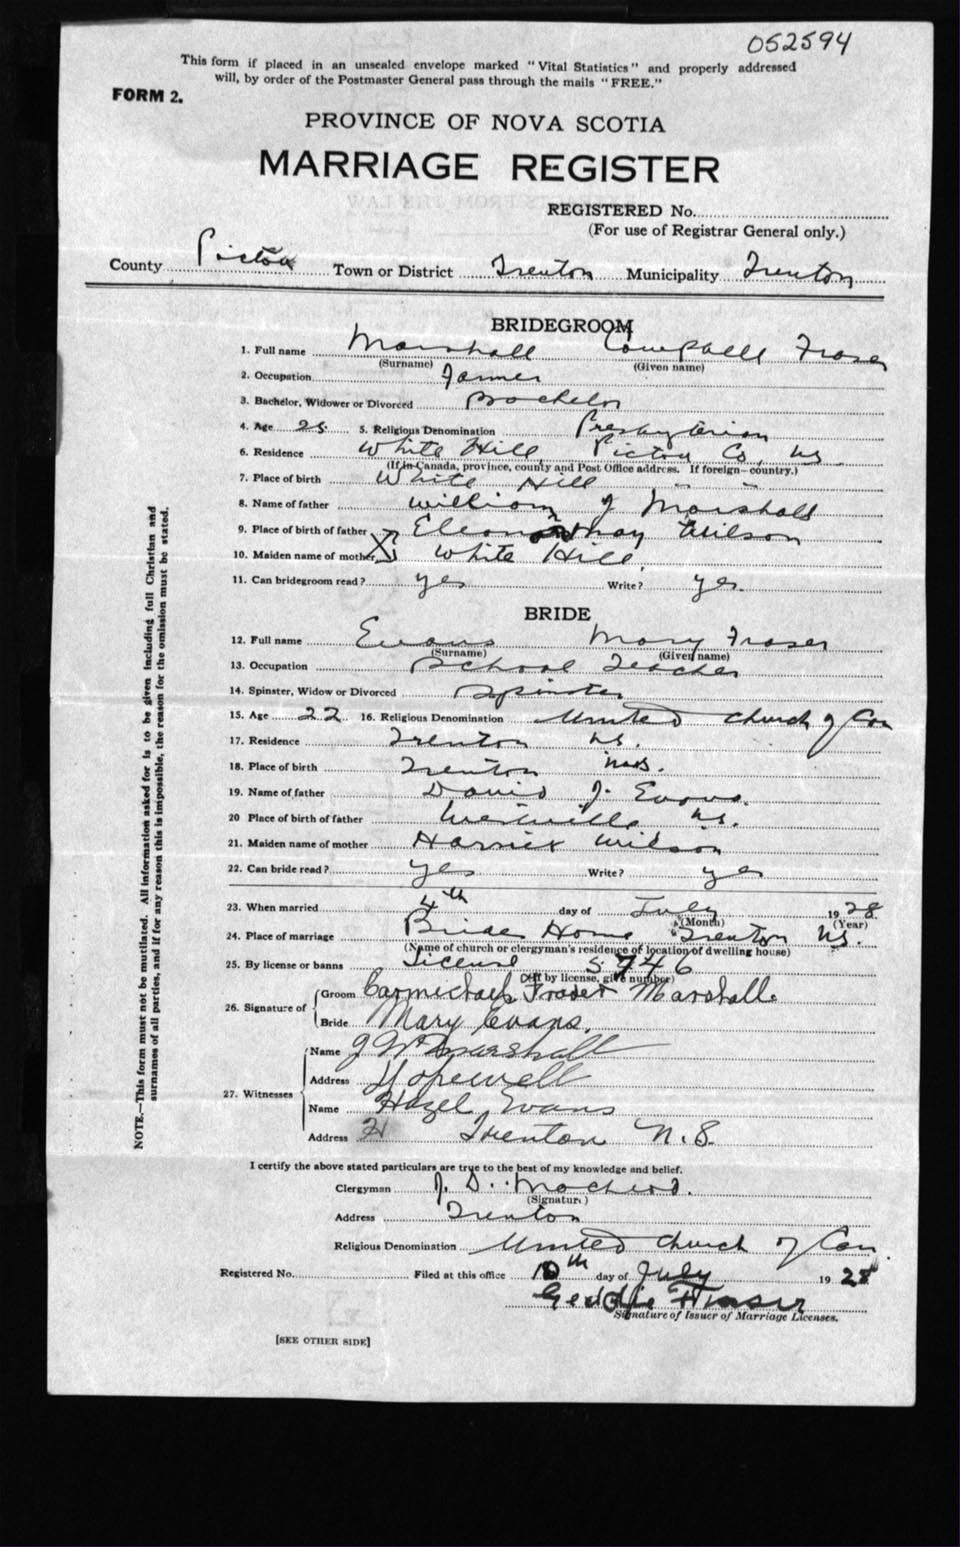 052594
This form if placed in an unsealed envelope marked "Vital Statistics" and properly addressed
will, by order of the Postmaster General pass through the mails "FREE."
FORM 2.
PROVINCE OF NOVA SCOTIA
MARRIAGE REGISTER
REGISTERED No.
(For use of Registrar General only.)
County Pictou Town or District Trenton Municipality Trenton
BRIDEGROOM
1. Full name Marshall Fraser
(Surname) (Given name)
2. Occupation Farmer
3. Bachelor, Widower or Divorced Bachelor
4. Age 25 5. Religious Denomination Presbyterian
6. Residence White Hill, Pictou Co, NS
(If in Canada, province, county and Post Office address. If foreign—country.)
7. Place of birth White Hill " "
8. Name of father William J Marshall
9. Place of birth of father Eleanor May Wilson
10. Maiden name of mother White Hill,
11. Can bridegroom read? yes Write? yes.
BRIDE
12. Full name Evans Mary Fraser
(Surname) (Given name)
13. Occupation School Teacher
14. Spinster, Widow or Divorced Spinster
15. Age 22 16. Religious Denomination United Church of Can
17. Residence Trenton NS.
18. Place of birth Trenton
19. Name of father David J. Evans.
20 Place of birth of father Westville NS.
21. Maiden name of mother Harriet Wilson
22. Can bride read? yes Write? yes
23. When married 4th day of July 1928
(Month) (Year)
24. Place of marriage Brides Home Trenton NS.
(Name of church or clergyman's residence of location of dwelling house)
25. By license or banns License 5746
(If by license, give number)
26. Signature of Groom Carmichael Fraser Marshall.
Bride Mary Evans.
27. Witnesses Name J Wm Marshall
Address Hopewell
Name Hazel Evans
Address H Trenton N.S.
I certify the above stated particulars are true to the best of my knowledge and belief.
Clergyman J. D.
(Signature)
Address Trenton
Religious Denomination United Church of Can.
Registered No. Filed at this office 10th day of July 1928
Geddie Fraser
Signature of Issuer of Marriage Licenses.
[SEE OTHER SIDE]
NOTE.—This form must not be mutilated. All information asked for is to be given including full Christian and
surnames of all parties, and if for any reason this is impossible, the reason for the omission must be stated.